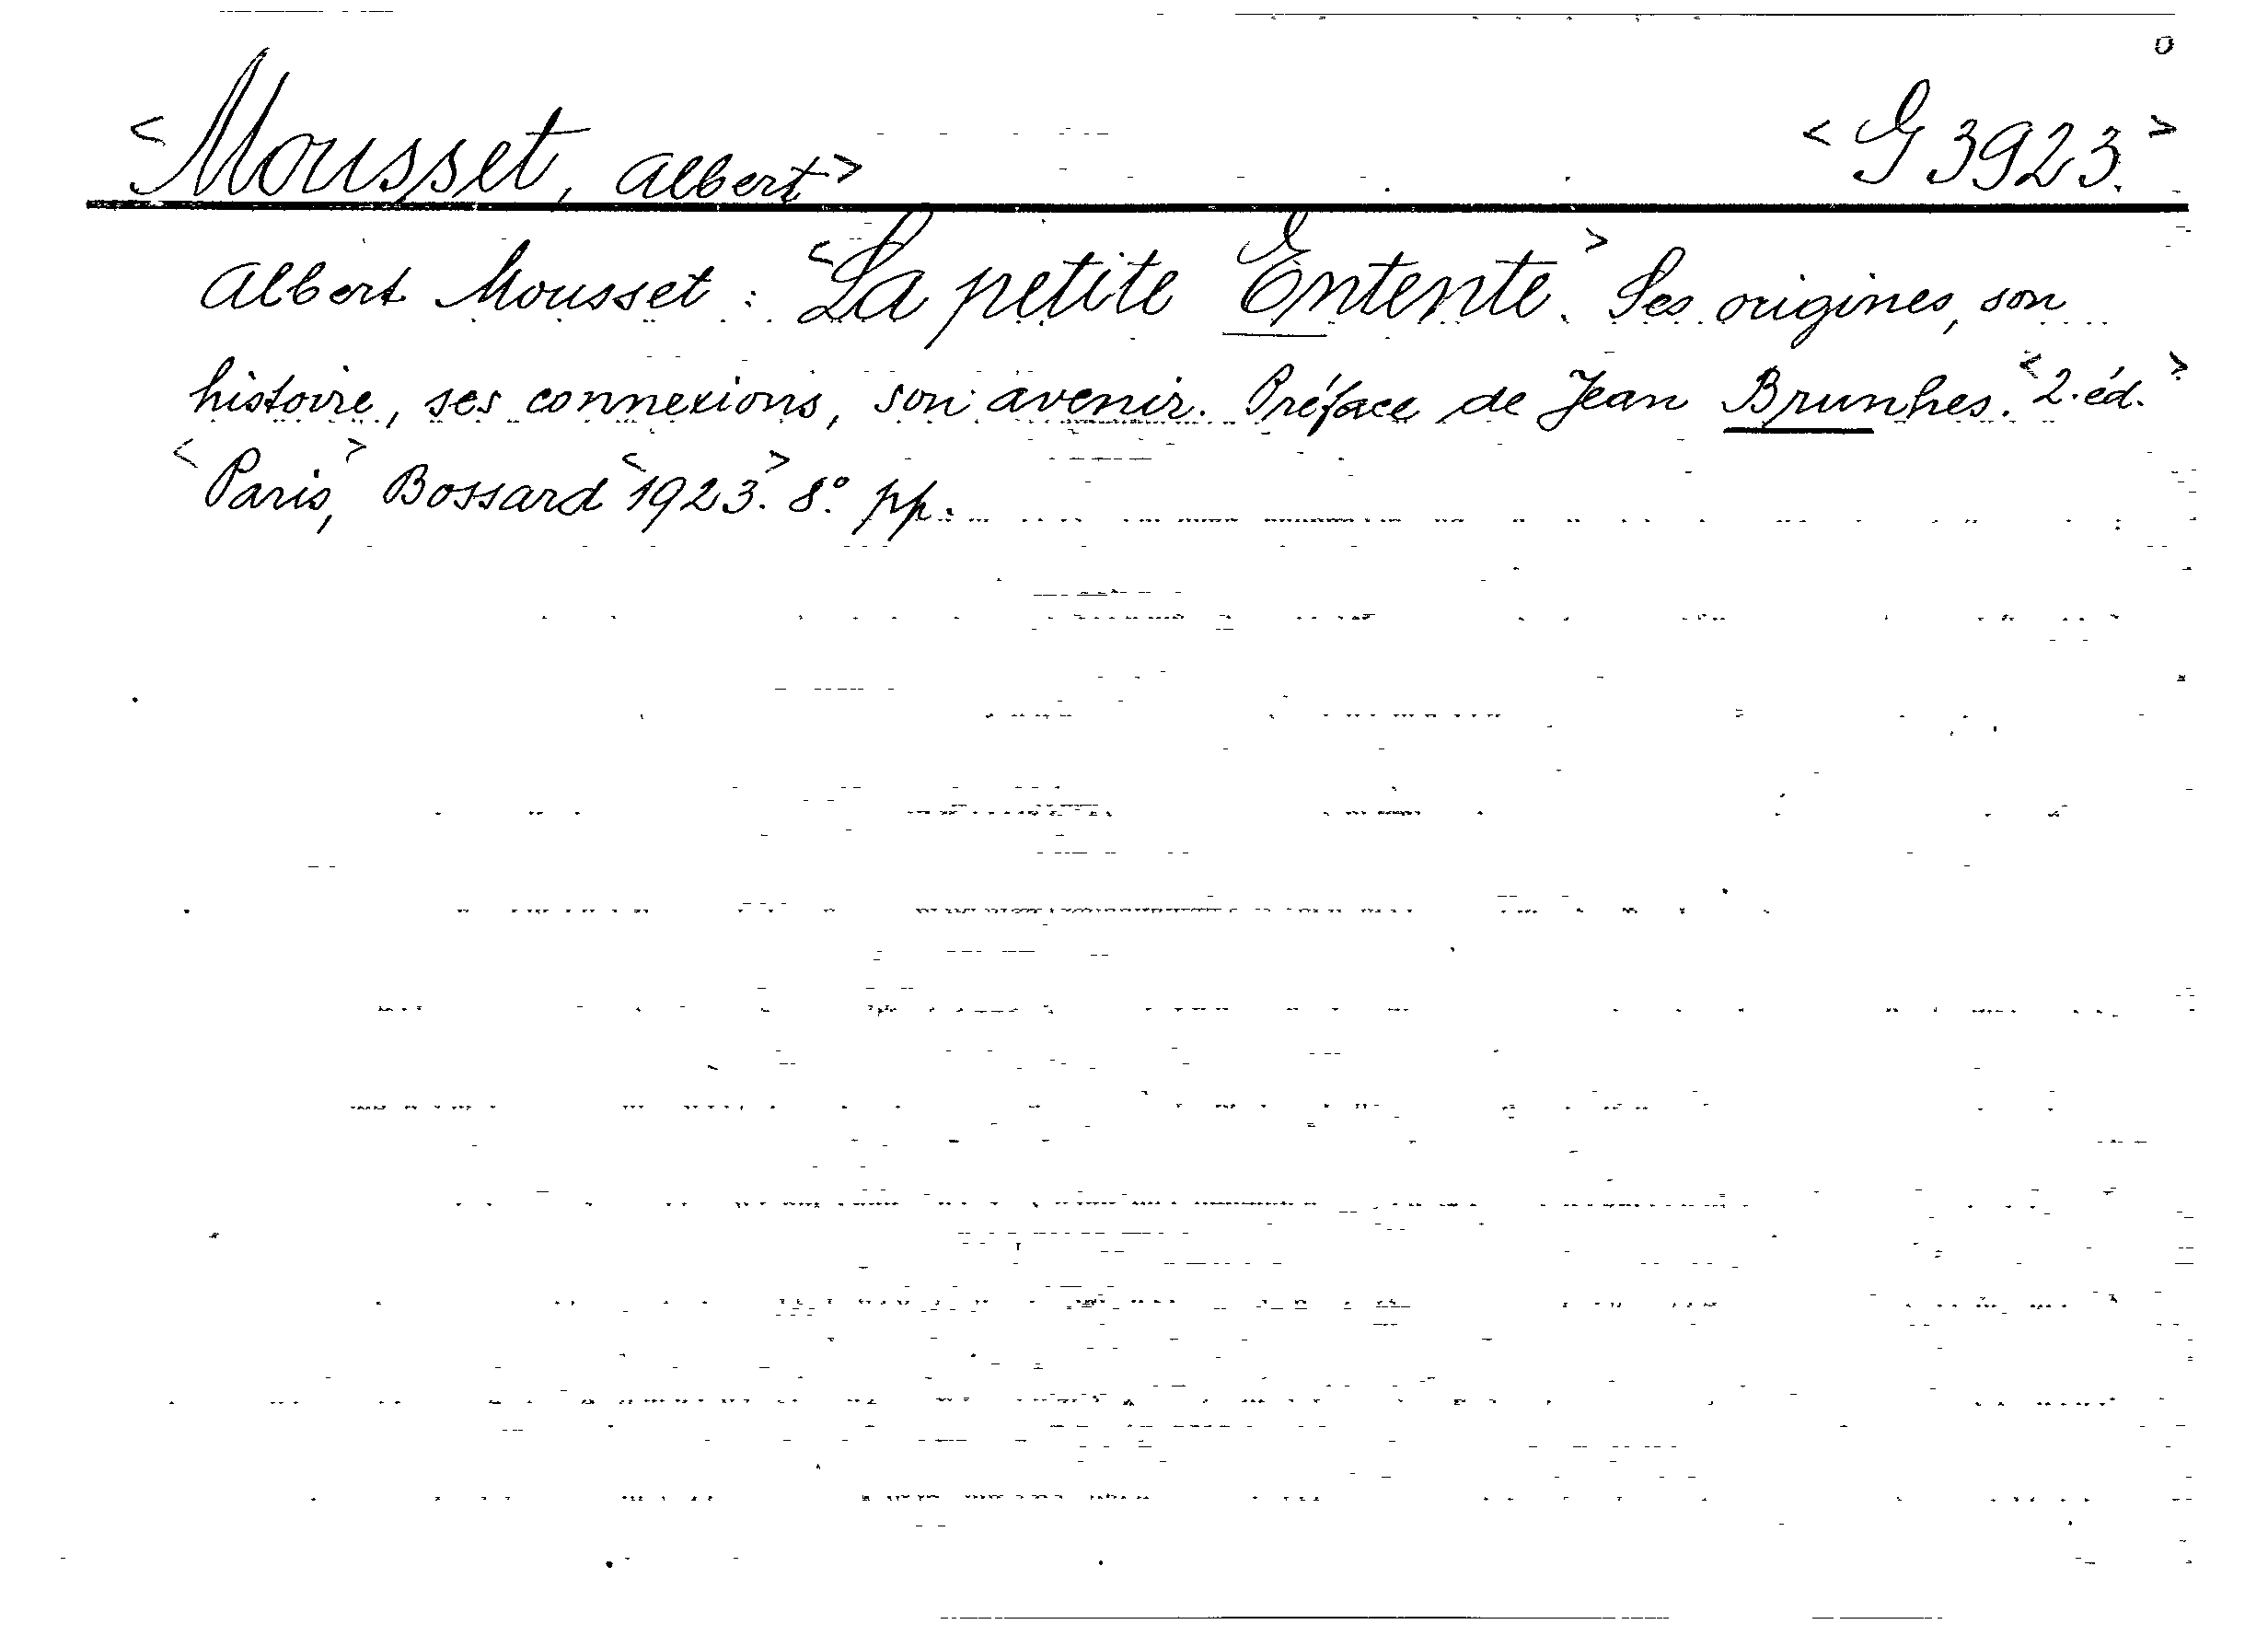 <Mousset, Albert> <G 3923.>
Albert Mousset: <La petite Entente.> Ses origines, son
histoire, ses connexions, son avenir. Préface de Jean Brunhes. <2. éd.>
<Paris,> Bossard <1923.> 8° pp.